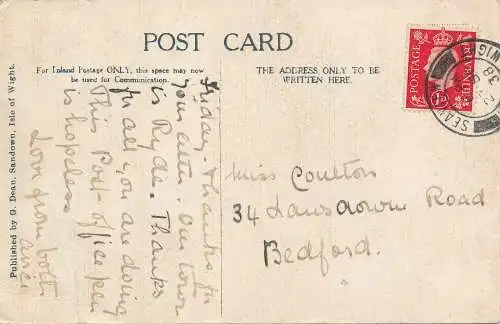 POST CARD
For Inland Postage ONLY, this space may now
be used for Communication.
THE ADDRESS ONLY TO BE
WRITTEN HERE.
POSTAGE
REVENUE
1D
SEA
38
Published by G. Dean, Sandown, Isle of Wight.
Friday - Thanks for
your letter. Our town
is Ryde. Thanks
for all you are doing
This Post-office pen
is hopeless
Love from both
Miss Coulton
34 Lansdowne Road
Bedford.